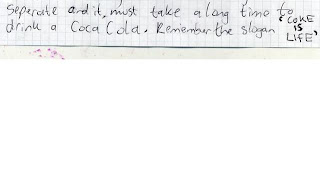 Seperate and it, must take a long time to
drink a Coca Cola. Remember the slogan "COKE
IS
LIFE"